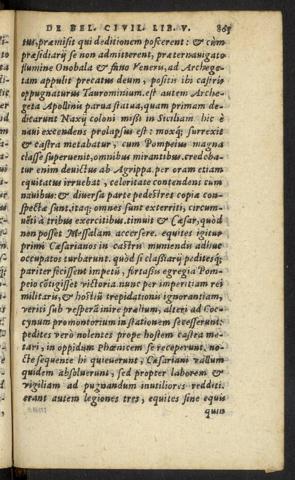 DE BEL. CIVIL. LIB. V. 865
tus, præmisit qui deditionem poscerent: & cùm
præsidiarij se non admitterent, præternauigato
flumine Onobala & fano Veneris, ad Archege-
tam appulit precatus deum, positis ibi castris
oppugnaturus Taurominium. est autem Arche-
geta Apollinis parua statua, quam primam de-
dicarunt Naxij coloni missi in Siciliam. hic è
naui exscendens prolapsus est: moxq́; surrexit
& castra metabatur, cum Pompeius magna
classe superuenit, omnibus mirantibus. credeba-
tur enim deuictus ab Agrippa. per oram etiam
equitatus irruebat, celeritate contendens cum
nauibus: & diuersa parte pedestres copiæ con-
spectæ sunt. itaq; omnes sunt exterriti, circum-
uenti à tribus exercitibus. timuit & Cæsar, quòd
non posset Messalam accersere. equites igitur
primi Cæsarianos in castris muniendis adhuc
occupatos turbarunt. quòd si classiarij peditesq́;
pariter fecissent impetũ, fortaßis egregia Pom-
peio cõtigisset victoria. nunc per imperitiam rei
militaris, & hostiũ trepidationis ignorantiam,
veriti sub vesperã inire prælium, alteri ad Coc-
cynum promontorium in stationem secesserunt:
pedites verò nolentes prope hostem castra me-
tari, in oppidum Phœnicem se receperunt. no-
cte sequente hi quieuerunt, Cæsariani vallum
quidem absoluerunt, sed propter laborem &
vigiliam ad pugnandum inutiliores redditi.
erant autem legiones tres, equites sine equis
quin-